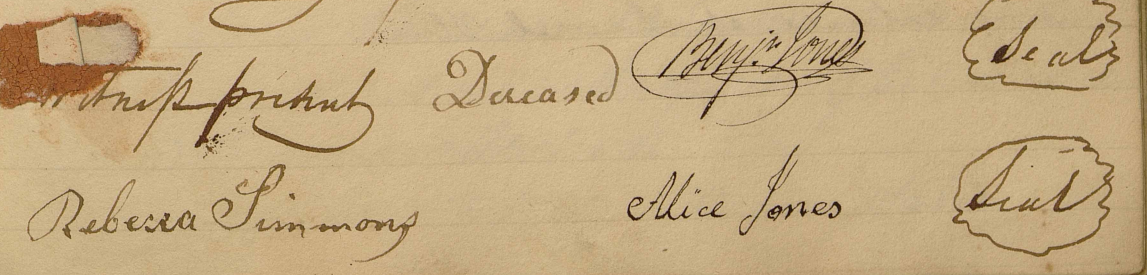 Witness present Deceased Benjn. Jones Seal
Rebecca Simmons Alice Jones Seal